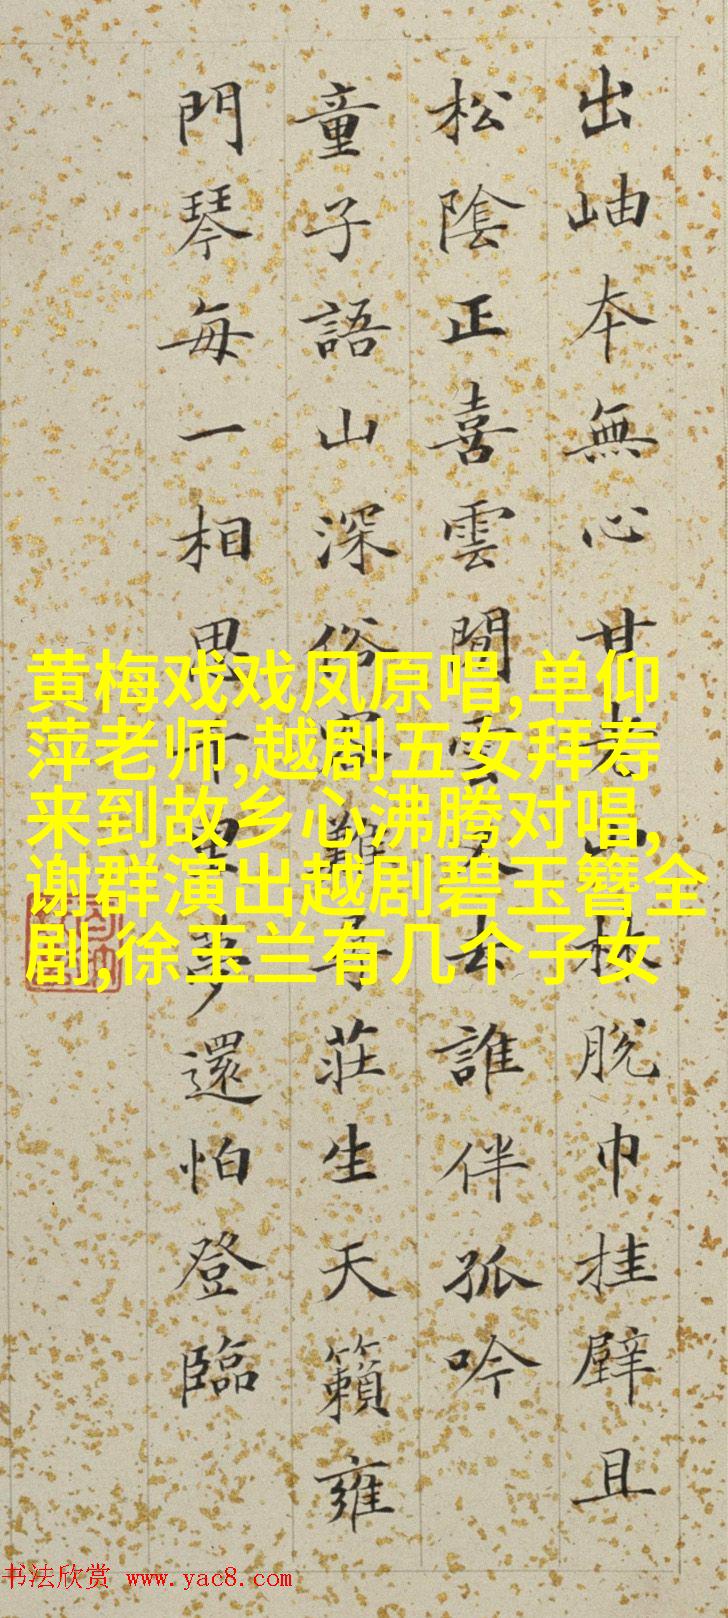 出岫本無心甘老山林脫巾挂壁且
松陰正喜雲閒雲又去誰伴孤吟
童子語山深俗客難尋莊生天籟雍
門琴每一相思千里夢還怕登臨
黄梅戏戏凤原唱,单仰
萍老师,越剧五女拜寿
来到故乡心沸腾对唱,
谢群演出越剧碧玉簪全
剧,徐玉兰有几个子女
书法欣赏 www.yac8.com